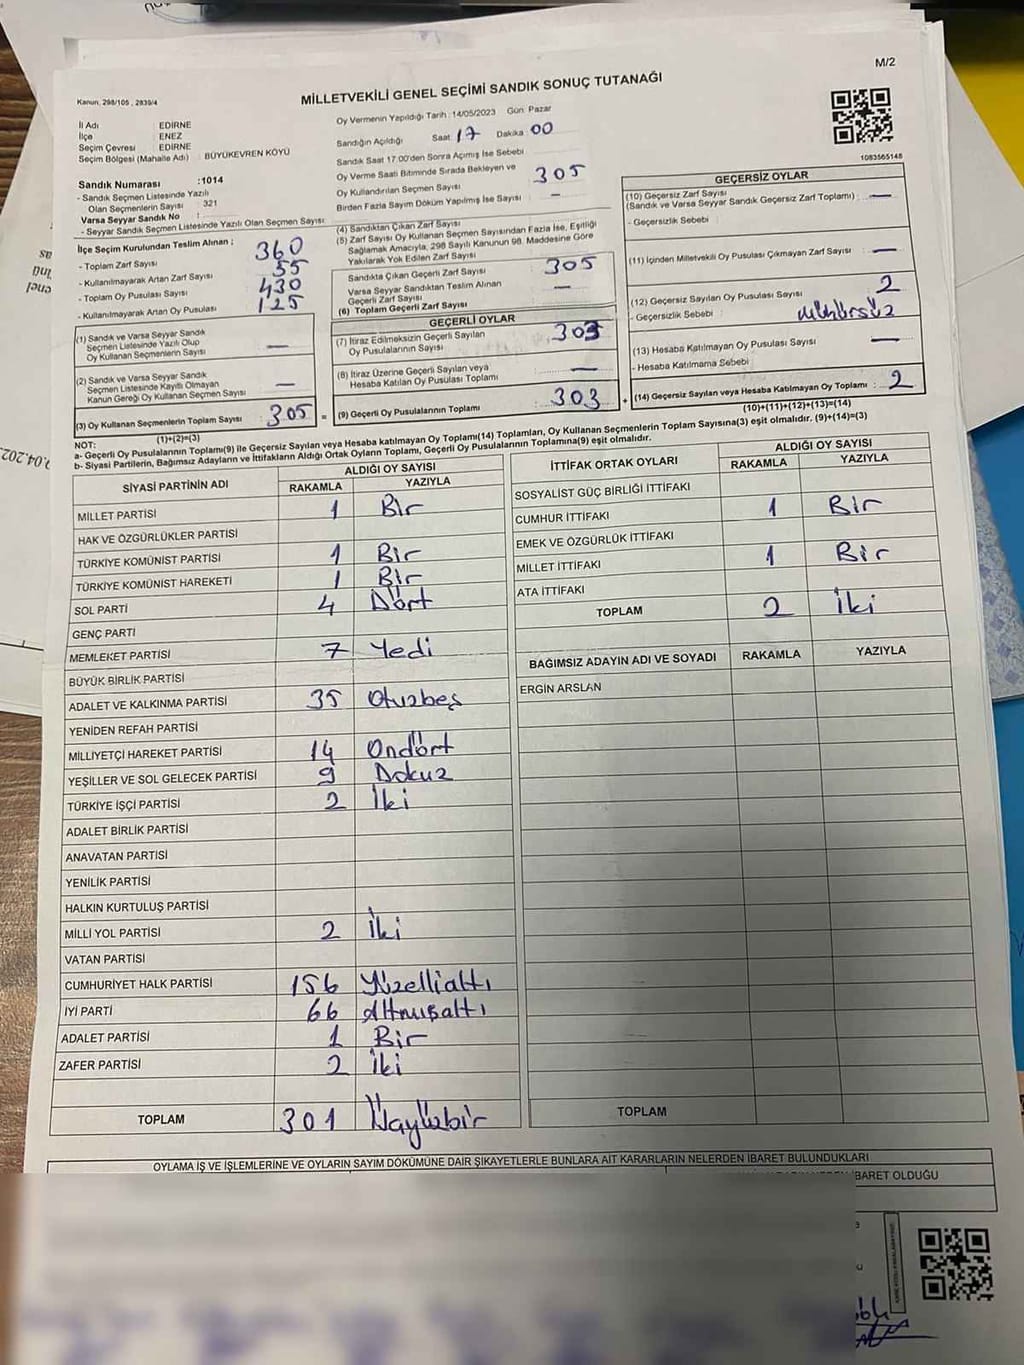 M/2
Kanun, 298/105 , 2839/4
MİLLETVEKİLİ GENEL SEÇİMİ SANDIK SONUÇ TUTANAĞI
İl Adı EDİRNE
İlçe ENEZ
Seçim Çevresi EDİRNE
Seçim Bölgesi (Mahalle Adı) : BÜYÜKEVREN KÖYÜ
Sandık Numarası :1014
- Sandık Seçmen Listesinde Yazılı
Olan Seçmenlerin Sayısı : 321
Varsa Seyyar Sandık No :
- Seyyar Sandık Seçmen Listesinde Yazılı Olan Seçmen Sayısı:
İlçe Seçim Kurulundan Teslim Alınan ;
- Toplam Zarf Sayısı 360
- Kullanılmayarak Artan Zarf Sayısı 55
- Toplam Oy Pusulası Sayısı 430
- Kullanılmayarak Artan Oy Pusulası 125
(1) Sandık ve Varsa Seyyar Sandık
Seçmen Listesinde Yazılı Olup
Oy Kullanan Seçmenlerin Sayısı : —
(2) Sandık ve Varsa Seyyar Sandık
Seçmen Listesinde Kayıtlı Olmayan
Kanun Gereği Oy Kullanan Seçmen Sayısı : —
(3) Oy Kullanan Seçmenlerin Toplam Sayısı : 305 =
(1)+(2)=(3)
Oy Vermenin Yapıldığı Tarih : 14/05/2023 Gün: Pazar
Sandığın Açıldığı Saat 17 Dakika 00
Sandık Saat 17.00'den Sonra Açımış İse Sebebi
Oy Verme Saati Bitiminde Sırada Bekleyen ve
Oy Kullandırılan Seçmen Sayısı 305
Birden Fazla Sayım Döküm Yapılmış İse Sayısı : —
(4) Sandıktan Çıkan Zarf Sayısı
(5) Zarf Sayısı Oy Kullanan Seçmen Sayısından Fazla İse, Eşitliği
Sağlamak Amacıyla, 298 Sayılı Kanunun 98. Maddesine Göre
Yakılarak Yok Edilen Zarf Sayısı
Sandıkta Çıkan Geçerli Zarf Sayısı : 305
Varsa Seyyar Sandıktan Teslim Alınan
Geçerli Zarf Sayısı : —
(6) Toplam Geçerli Zarf Sayısı
GEÇERLİ OYLAR
(7) İtiraz Edilmeksizin Geçerli Sayılan
Oy Pusulalarının Sayısı : 303
(8) İtiraz Üzerine Geçerli Sayılan veya
Hesaba Katılan Oy Pusulası Toplamı : —
(9) Geçerli Oy Pusulalarının Toplamı : 303 +
1083565148
GEÇERSİZ OYLAR
(10) Geçersiz Zarf Sayısı
(Sandık ve Varsa Seyyar Sandık Geçersiz Zarf Toplamı) : —
- Geçersizlik Sebebi :
(11) İçinden Milletvekili Oy Pusulası Çıkmayan Zarf Sayısı : —
(12) Geçersiz Sayılan Oy Pusulası Sayısı : 2
- Geçersizlik Sebebi : Mühürsüz
(13) Hesaba Katılmayan Oy Pusulası Sayısı : —
- Hesaba Katılmama Sebebi :
(14) Geçersiz Sayılan veya Hesaba Katılmayan Oy Toplamı : 2
(10)+(11)+(12)+(13)=(14)
NOT:
a- Geçerli Oy Pusulalarının Toplamı(9) ile Geçersiz Sayılan veya Hesaba katılmayan Oy Toplamı(14) Toplamları, Oy Kullanan Seçmenlerin Toplam Sayısına(3) eşit olmalıdır. (9)+(14)=(3)
b- Siyasi Partilerin, Bağımsız Adayların ve İttifakların Aldığı Ortak Oyların Toplamı, Geçerli Oy Pusulalarının Toplamına(9) eşit olmalıdır.
SİYASİ PARTİNİN ADI ALDIĞI OY SAYISI
RAKAMLA YAZIYLA
MİLLET PARTİSİ 1 Bir
HAK VE ÖZGÜRLÜKLER PARTİSİ
TÜRKİYE KOMÜNİST PARTİSİ 1 Bir
TÜRKİYE KOMÜNİST HAREKETİ 1 Bir
SOL PARTİ 4 Dört
GENÇ PARTİ
MEMLEKET PARTİSİ 7 Yedi
BÜYÜK BİRLİK PARTİSİ
ADALET VE KALKINMA PARTİSİ 35 Otuzbeş
YENİDEN REFAH PARTİSİ
MİLLİYETÇİ HAREKET PARTİSİ 14 Ondört
YEŞİLLER VE SOL GELECEK PARTİSİ 9 Dokuz
TÜRKİYE İŞÇİ PARTİSİ 2 İki
ADALET BİRLİK PARTİSİ
ANAVATAN PARTİSİ
YENİLİK PARTİSİ
HALKIN KURTULUŞ PARTİSİ
MİLLİ YOL PARTİSİ 2 İki
VATAN PARTİSİ
CUMHURİYET HALK PARTİSİ 156 Yüzellialtı
İYİ PARTİ 66 Altmışaltı
ADALET PARTİSİ 1 Bir
ZAFER PARTİSİ 2 İki
TOPLAM 301 Üçyüzbir
İTTİFAK ORTAK OYLARI ALDIĞI OY SAYISI
RAKAMLA YAZIYLA
SOSYALİST GÜÇ BİRLİĞİ İTTİFAKI
CUMHUR İTTİFAKI 1 Bir
EMEK VE ÖZGÜRLÜK İTTİFAKI
MİLLET İTTİFAKI 1 Bir
ATA İTTİFAKI
TOPLAM 2 İki
BAĞIMSIZ ADAYIN ADI VE SOYADI RAKAMLA YAZIYLA
ERGİN ARSLAN
TOPLAM
OYLAMA İŞ VE İŞLEMLERİNE VE OYLARIN SAYIM DÖKÜMÜNE DAİR ŞİKAYETLERLE BUNLARA AİT KARARLARIN NELERDEN İBARET BULUNDUKLARI
BARET OLDUĞU